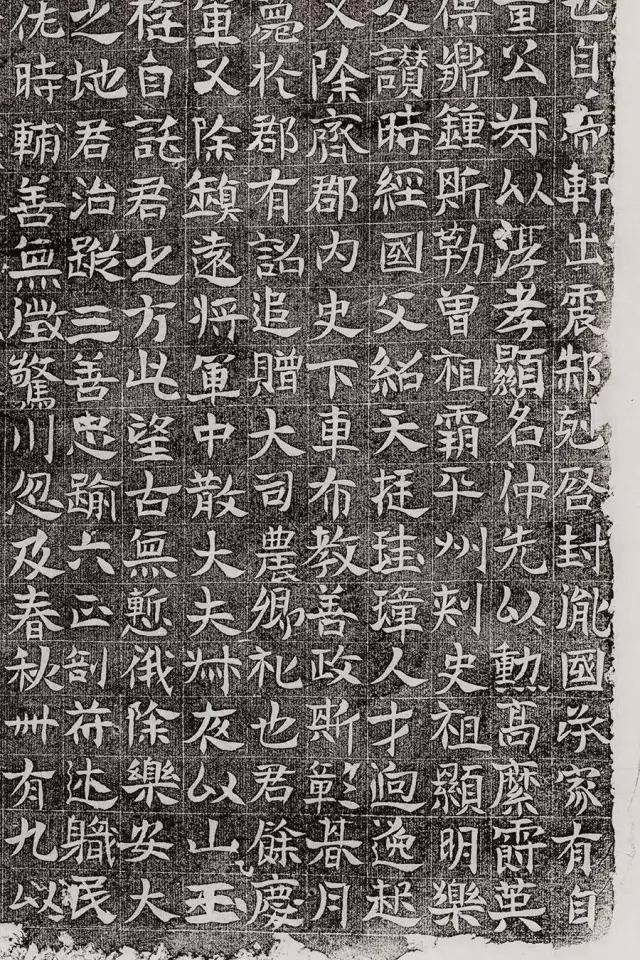 也自帝軒出震克啓封胤國承家有自
公叔以淳孝顯名仲先以勳高縻爵英
傳鼎鍾斯勒曾祖霸平州刾史祖顯明樂
讃時經國父紹天挺珪璋人才逈逸
又除齊郡內史下車布教善政斯彰朞月
薨於郡有詔追贈大司農卿礼也君餘慶
軍又除鎮遠將軍中散大夫叔夜以山玉
自託君之方此望古無慙俄除樂安大
之地君治蹤三善忠踰六正剖苻述職民
佐時輔善無徵驚川忽及春秋卌有九以